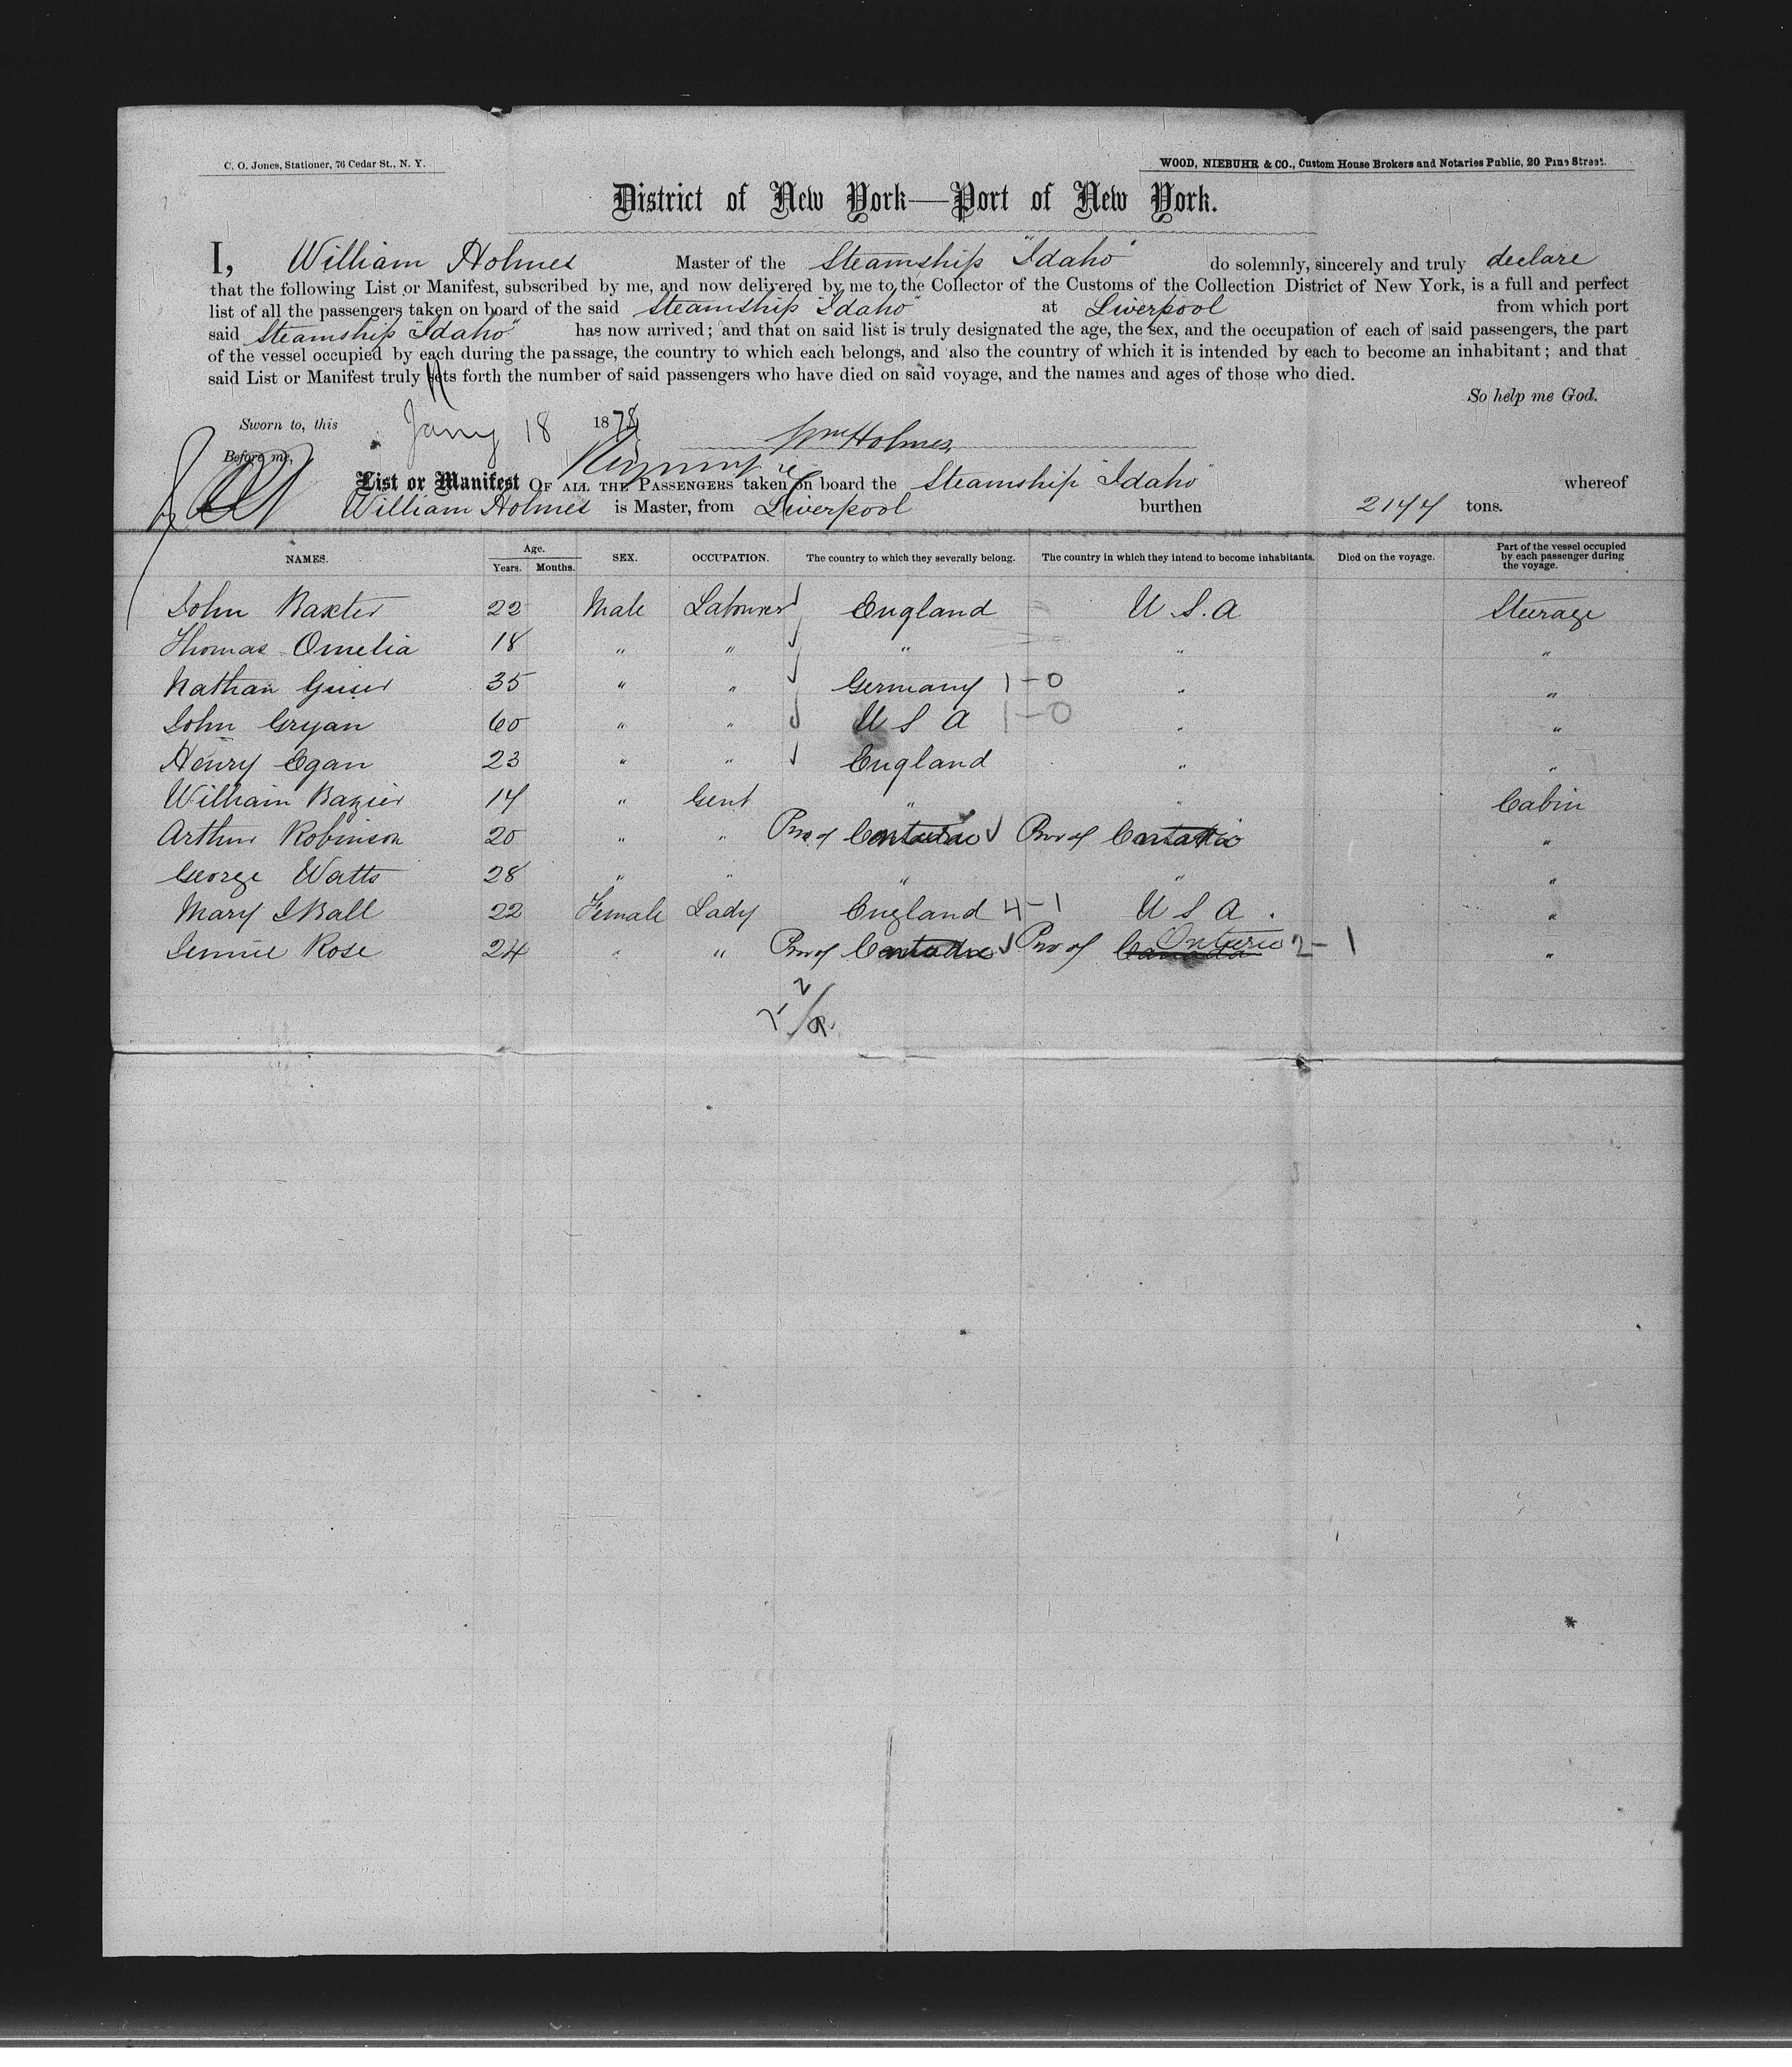 C. O. Jones, Stationer, 76 Cedar St., N. Y.
WOOD, NIEBUHR & CO., Custom House Brokers and Notaries Public, 20 Pine Street.
District of New York—Port of New York.
I, William Holmes Master of the Steamship "Idaho" do solemnly, sincerely and truly declare
that the following List or Manifest, subscribed by me, and now delivered by me to the Collector of the Customs of the Collection District of New York, is a full and perfect
list of all the passengers taken on board of the said Steamship "Idaho" at Liverpool from which port
said Steamship "Idaho" has now arrived; and that on said list is truly designated the age, the sex, and the occupation of each of said passengers, the part
of the vessel occupied by each during the passage, the country to which each belongs, and also the country of which it is intended by each to become an inhabitant; and that
said List or Manifest truly sets forth the number of said passengers who have died on said voyage, and the names and ages of those who died.
So help me God.
Sworn to, this Jany 18 1878
Wm Holmes
Before me,
List or Manifest OF ALL THE PASSENGERS taken on board the Steamship "Idaho" whereof
William Holmes is Master, from Liverpool burthen 2144 tons.
NAMES. Age. Years. Months. SEX. OCCUPATION. The country to which they severally belong. The country in which they intend to become inhabitants. Died on the voyage. Part of the vessel occupied by each passenger during the voyage.
John Baxter 22 Male Labourer England U.S.A Steerage
Thomas Omelia 18 " " " " "
Nathan 35 " " Germany 1-0 " "
John Gryan 60 " " U S A 1-0 " "
Henry Egan 23 " " England " "
William Bazier 14 " Gent " " Cabin
Arthur Robinson 20 " " Prov of Ontario Prov of Ontario "
George Watts 28 " " " " "
Mary J Ball 22 Female Lady England 4-1 U S A. "
Jennie Rose 24 " " Prov of Ontario Prov of Canada Ontario 2-1 "